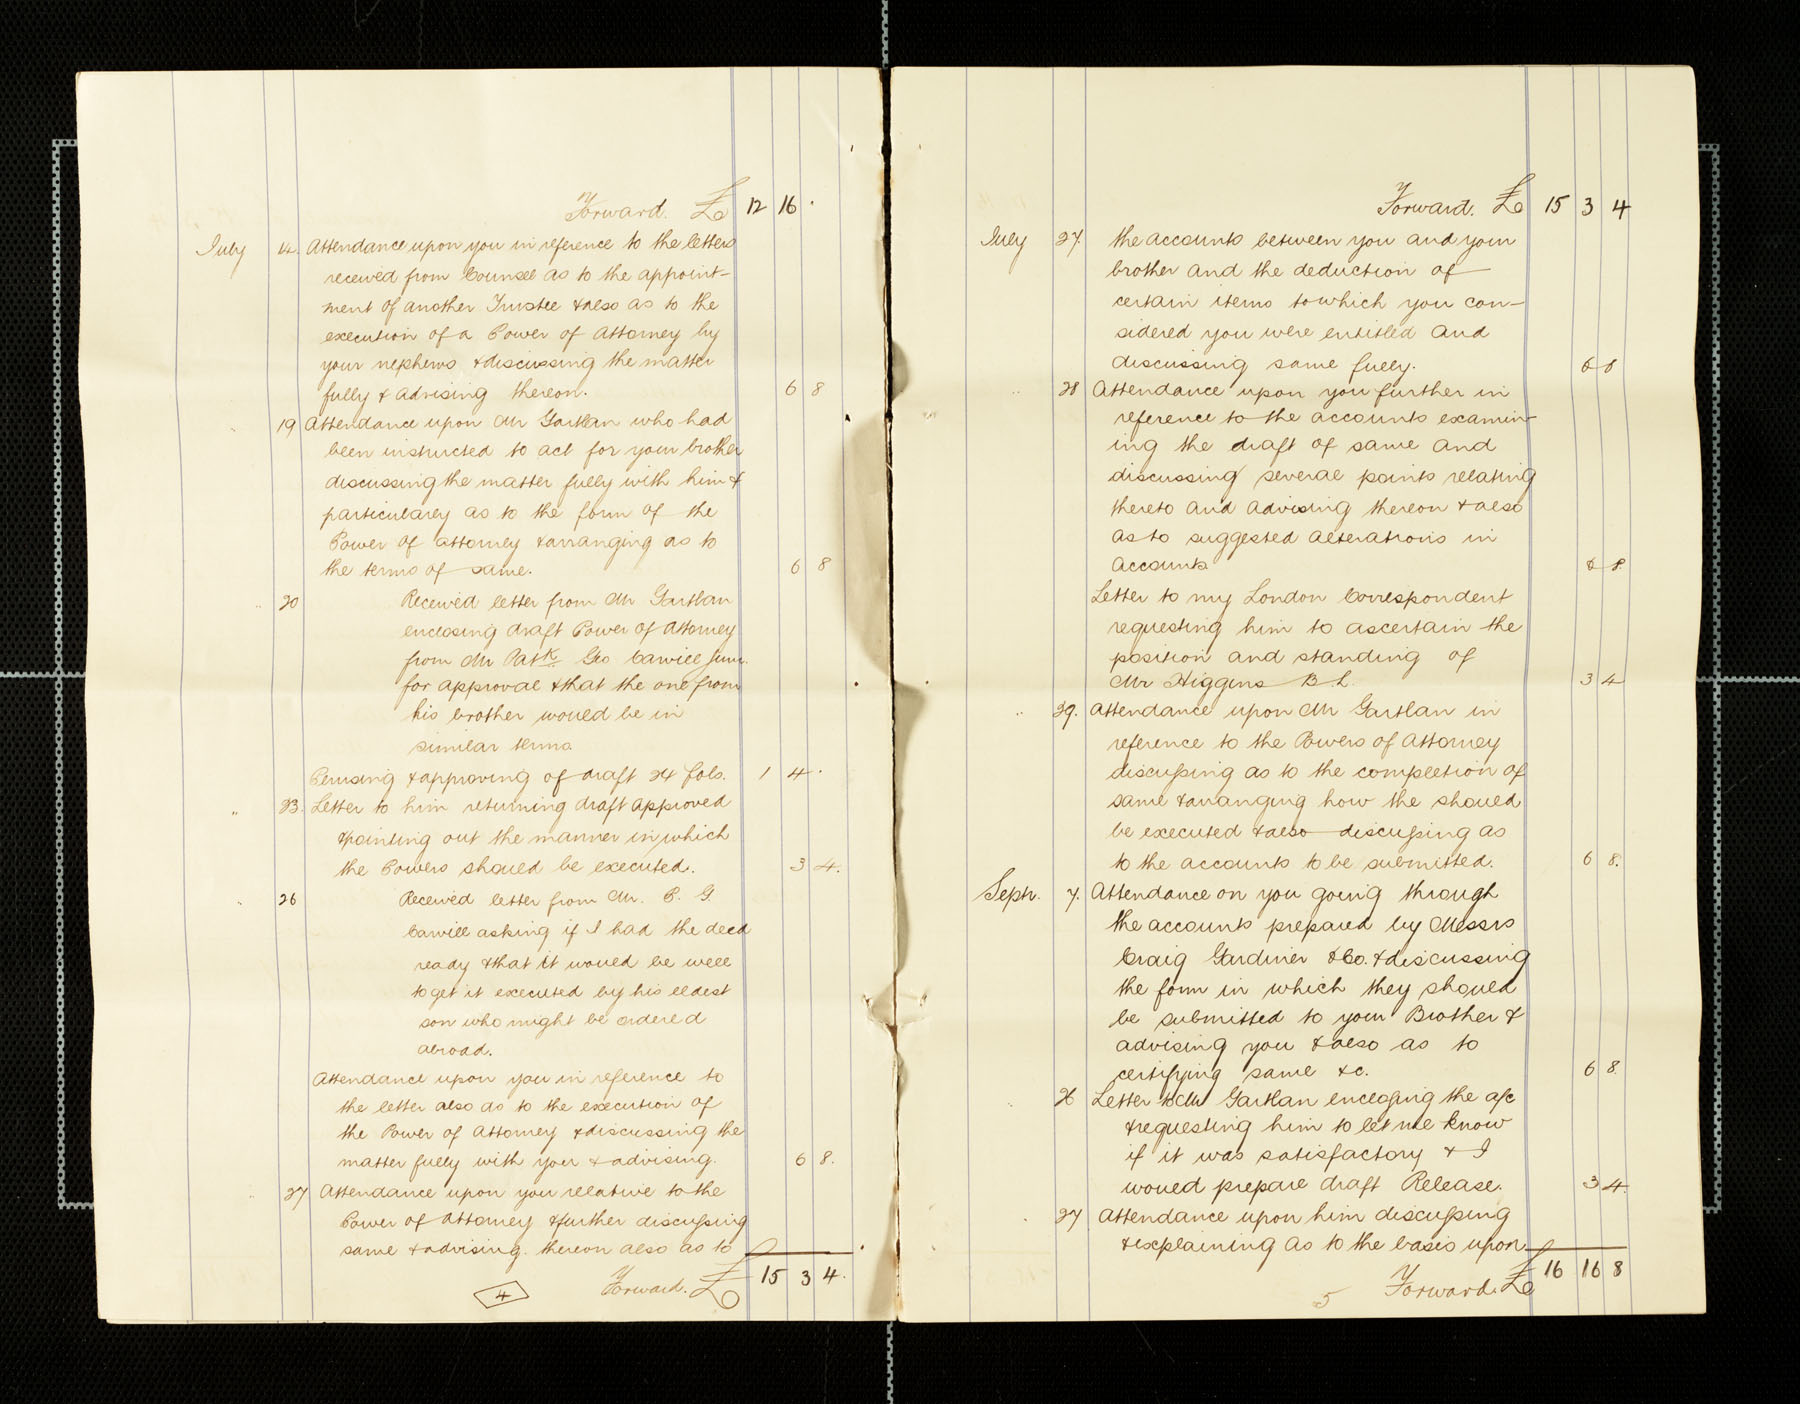 Forward. £ 12 16 .
July 14. Attendance upon you in reference to the letters
received from Counsel as to the appoint-
ment of another Trustee & also as to the
execution of a Power of Attorney by
your nephews & discussing the matter
fully & advising thereon. 6 8
" 19 Attendance upon Mr Gartlan who had
been instructed to act for your brother
discussing the matter fully with him &
particularly as to the form of the
Power of Attorney & arranging as to
the terms of same. 6 8
" 20 Received letter from Mr Gartlan
enclosing draft Power of Attorney
from Mr Patk. Geo Carvill Junr.
for approval & that the one from
his brother would be in
similar terms.
Perusing & approving of draft 24 fols. 1 4 .
" 23. Letter to him returning draft approved
& pointing out the manner in which
the Powers should be executed. 3 4.
" 26 Received letter from Mr. P. G.
Carvill asking if I had the deed
ready & that it would be well
to get it executed by his eldest
son who might be ordered
abroad.
Attendance upon you in reference to
the letter also as to the execution of
the Power of Attorney & discussing the
matter fully with you & advising. 6 8.
" 27 Attendance upon you relative to the
Power of Attorney & further discussing
same & advising thereon also as to
Forward. £ 15 3 4.
4
Forward. £ 15 3 4
July 27. the accounts between you and your
brother and the deduction of
certain items to which you con-
sidered you were entitled and
discussing same fully. 6 8
" 28 Attendance upon you further in
reference to the accounts examin-
ing the draft of same and
discussing several points relating
thereto and advising thereon & also
as to suggested alterations in
accounts 6 8.
Letter to my London Correspondent
requesting him to ascertain the
position and standing of
Mr Higgins B.L. 3 4
" 29. Attendance upon Mr Gartlan in
reference to the Powers of Attorney
discussing as to the completion of
same & arranging how the should
be executed & also discussing as
to the accounts to be submitted. 6 8.
Septr. 7. Attendance on you going through
the accounts prepared by Messrs
Craig Gardiner & Co. & discussing
the form in which they should
be submitted to your Brother &
advising you & also as to
certifying same &c. 6 8.
" 26 Letter to Mr Gartlan enclosing the a/c
& requesting him to let me know
if it was satisfactory & I
would prepare draft Release. 3 4.
" 27 Attendance upon him discussing
& explaining as to the basis upon
Forward. £ 16 16 8
5